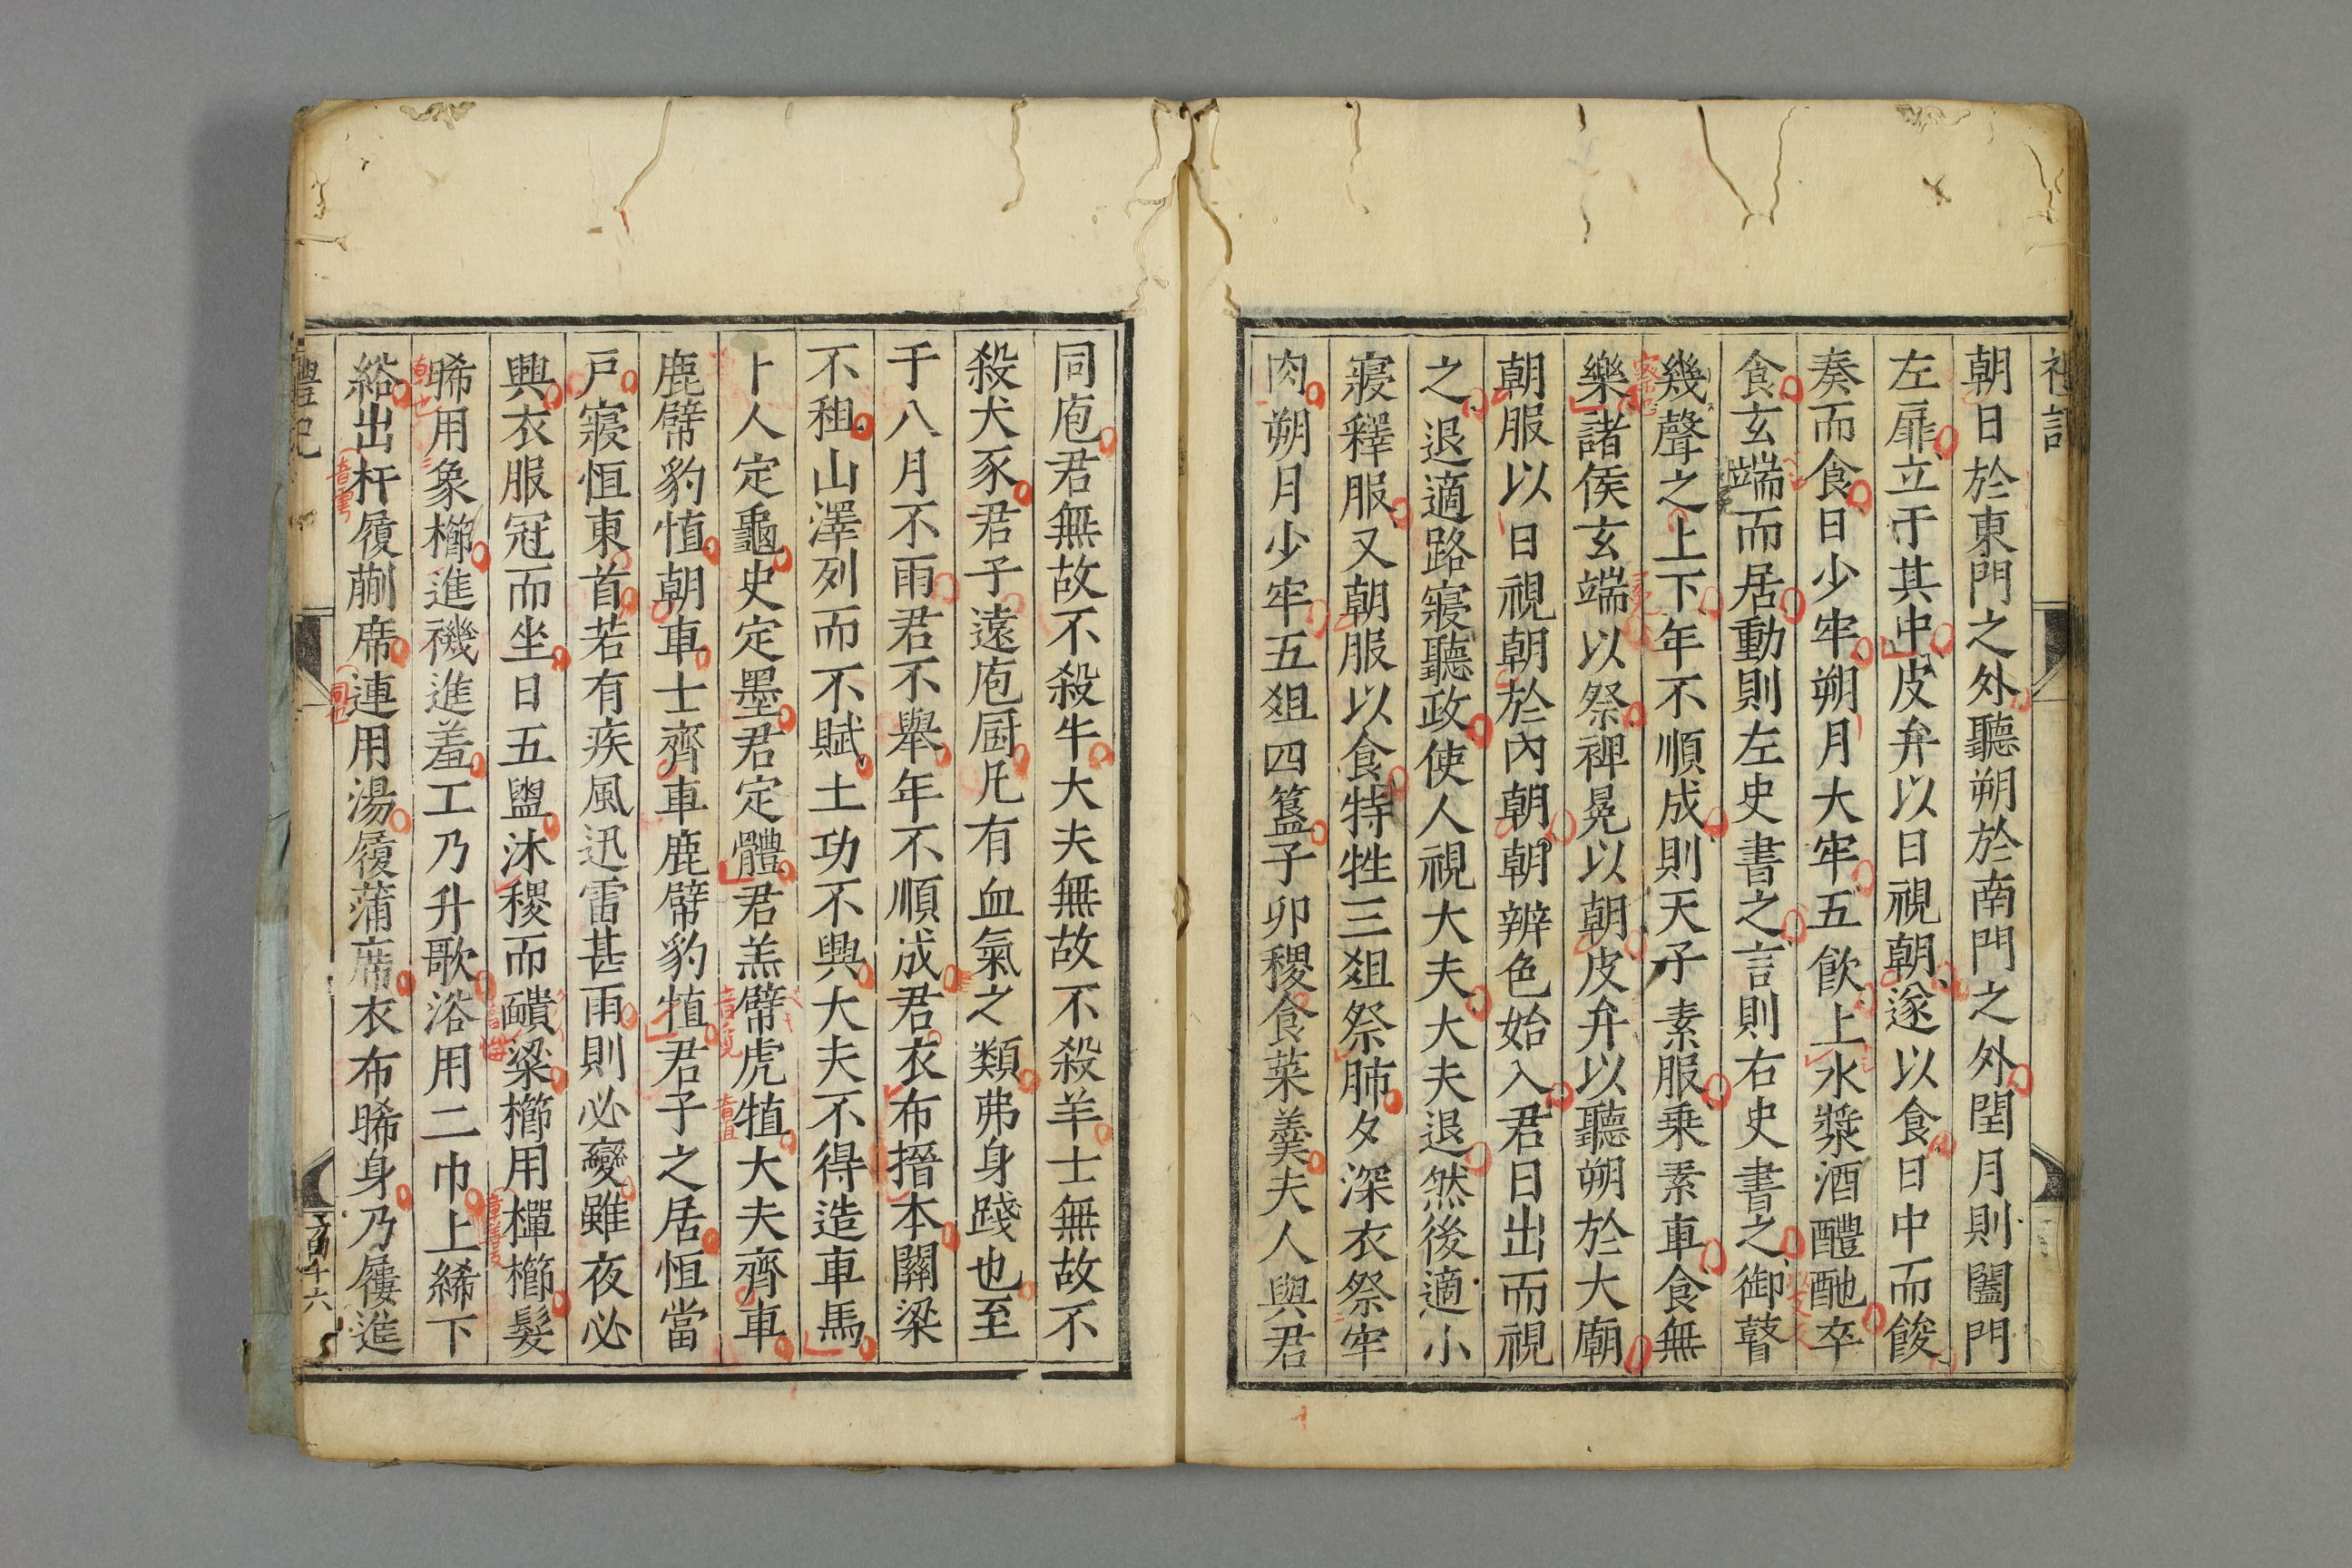 禮記
朝日於東門之外聽朔於南門之外閏月則闔門
左扉立于其中皮弁以日視朝遂以食日中而餕
奏而食日少牢朔月大牢五飲上水漿酒醴酏卒
食玄端而居動則左史書之言則右史書之御瞽
幾聲之上下年不順成則天子素服乗素車食無
樂諸侯玄端以祭裨冕以朝皮弁以聽朔於大廟
朝服以日視朝於內朝朝辨色始入君日出而視
之退適路寢聽政使人視大夫大夫退然後適小
寢釋服又朝服以食特牲三俎祭肺夕深衣祭牢
肉朔月少牢五俎四簋子卯稷食菜羹夫人與君
同庖君無故不殺牛大夫無故不殺羊士無故不
殺犬豕君子遠庖厨凡有血氣之類弗身踐也至
于八月不雨君不舉年不順成君衣布搢本關梁
不租山澤列而不賦土功不興大夫不得造車馬
卜人定龜史定墨君定體君羔幦虎犆大夫齊車
鹿幦豹犆朝車士齊車鹿幦豹犆君子之居恒當
戶寢恒東首若有疾風迅雷甚雨則必變雖夜必
興衣服冠而坐日五盥沐稷而靧粱櫛用樿櫛髮
晞用象櫛進禨進羞工乃升歌浴用二巾上絺下
綌出杅履蒯席連用湯履蒲席衣布晞身乃屨進
禮記
百十六